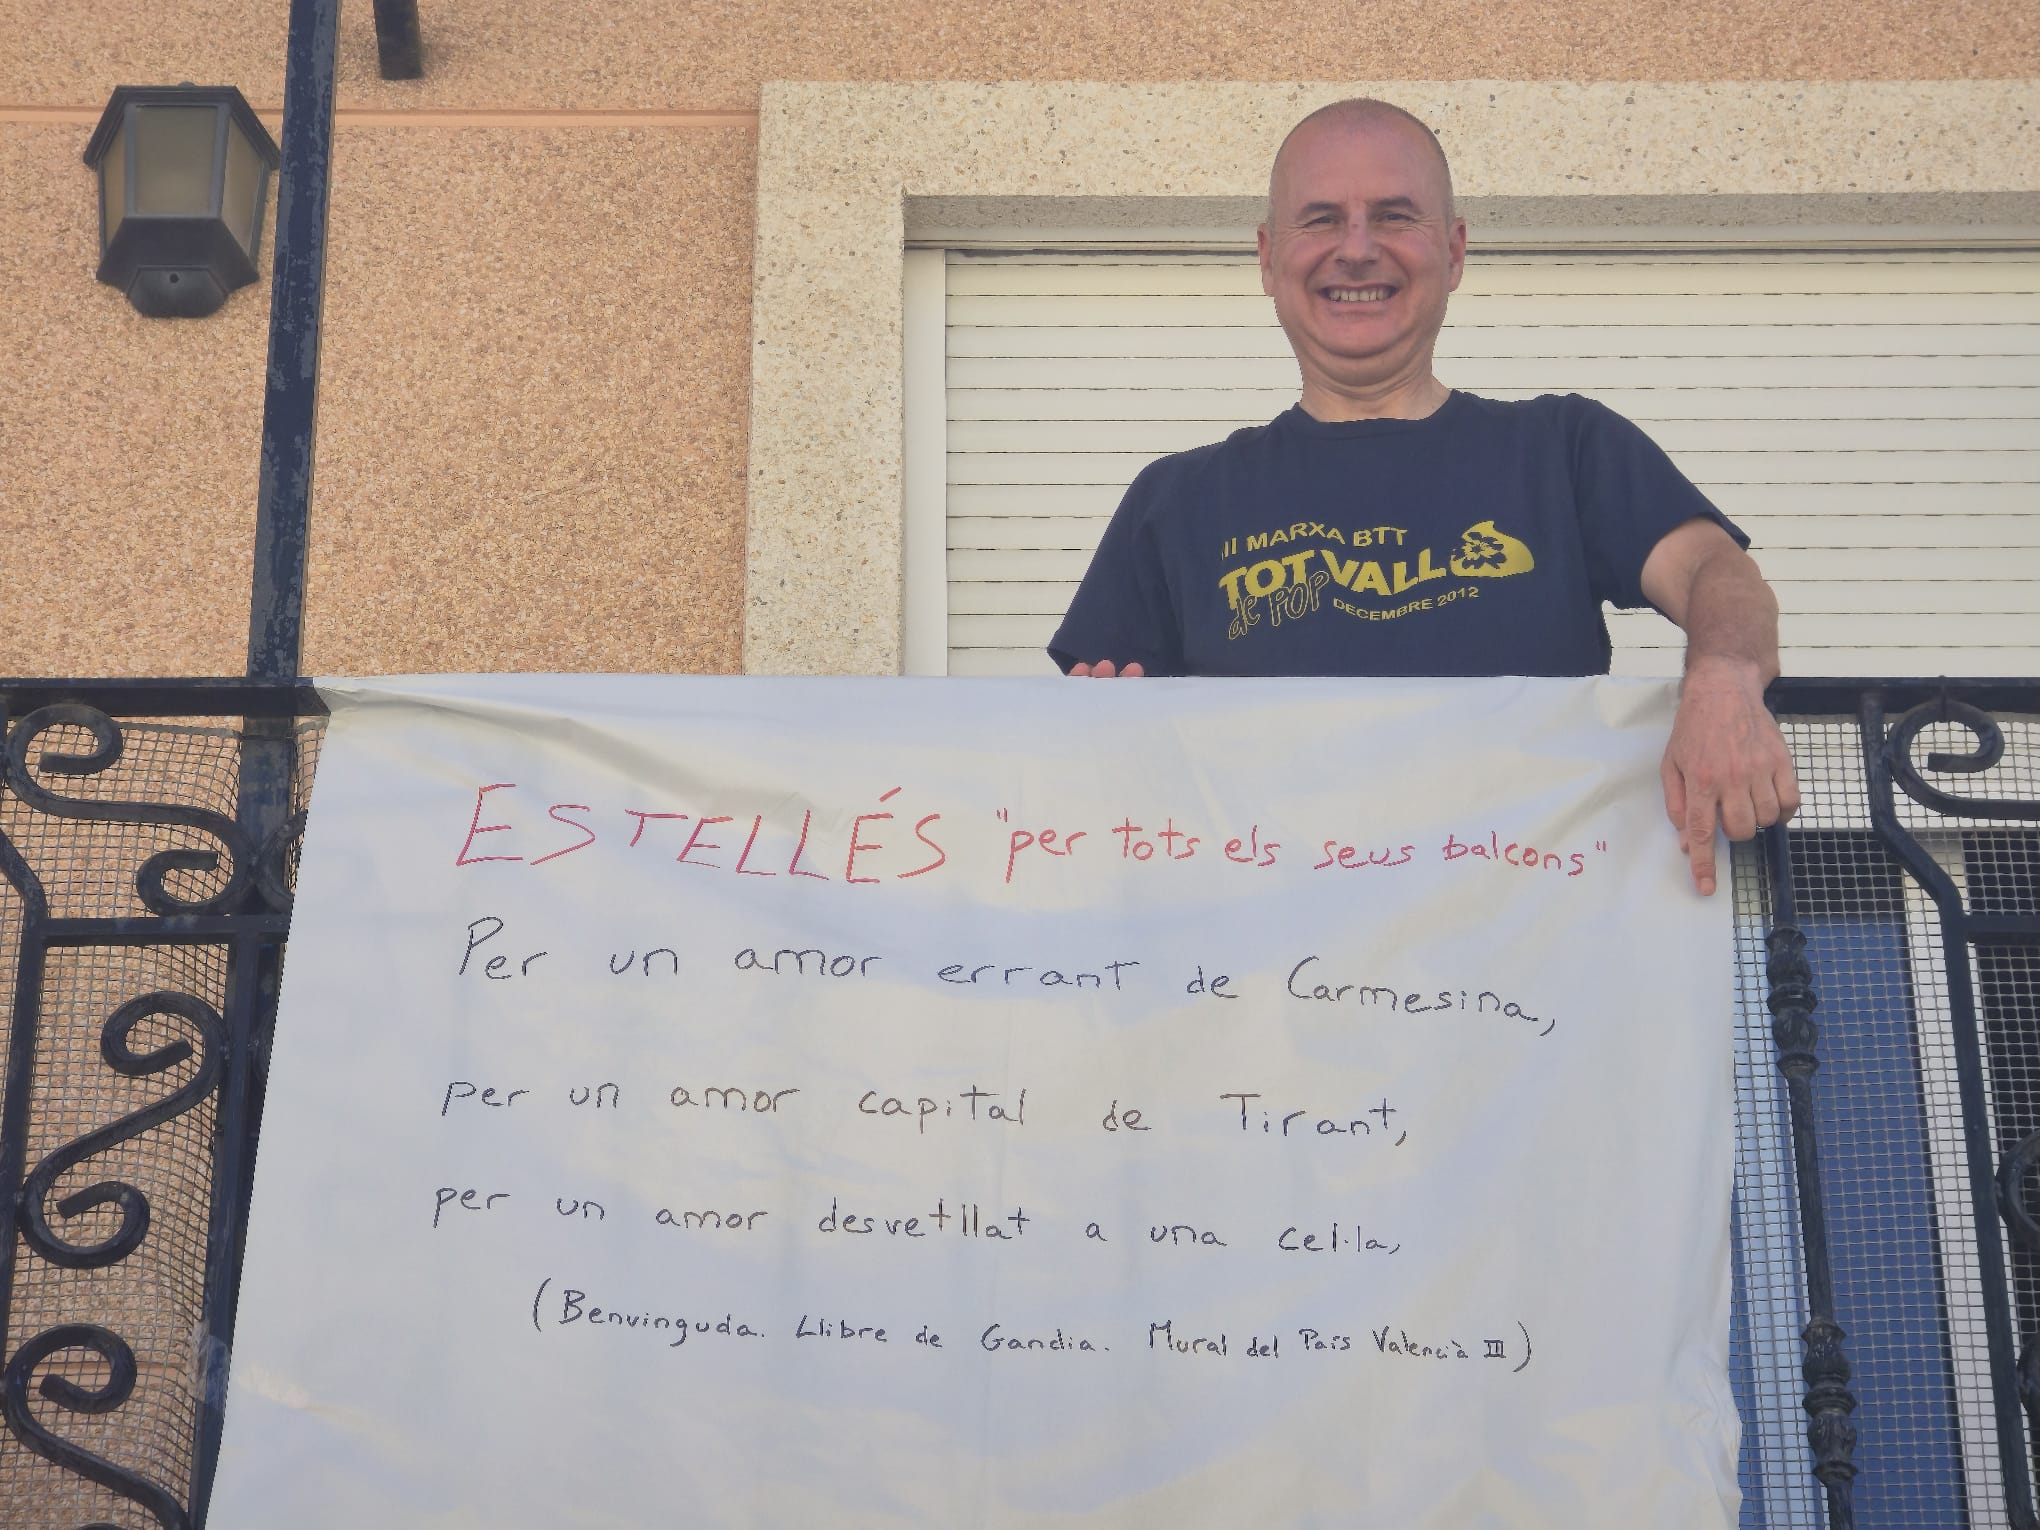 III MARXA BTT
TOT VALL
de POP DECEMBRE 2012
ESTELLÉS "per tots els seus balcons"
Per un amor errant de Carmesina,
per un amor capital de Tirant,
per un amor desvetllat a una cel·la,
(Benvinguda. Llibre de Gandia. Mural del País Valencià III)